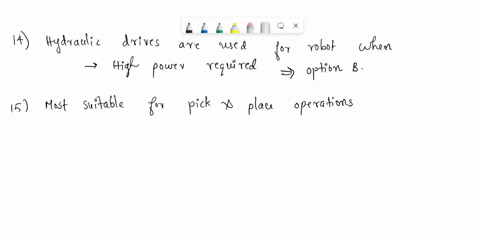 14) Hydraulic drives are used for robot when
→ High power required ⇒ option B.
15) Most suitable for pick & place operations